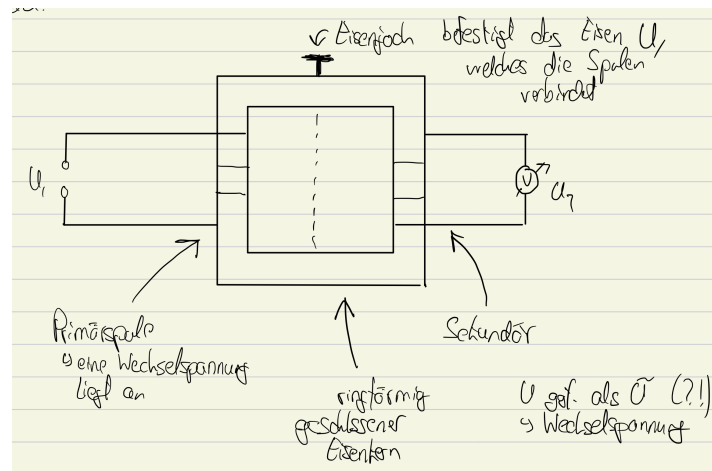 ↙ Eisenjoch befestigt das Eisen U,
welches die Spulen
verbindet
U₁
V
U₂
Primärspule
↳ eine Wechselspannung
liegt an
Sekundär
ringförmig
geschlossener
Eisenkern
U ggf. als Ũ (?!)
↳ Wechselspannung